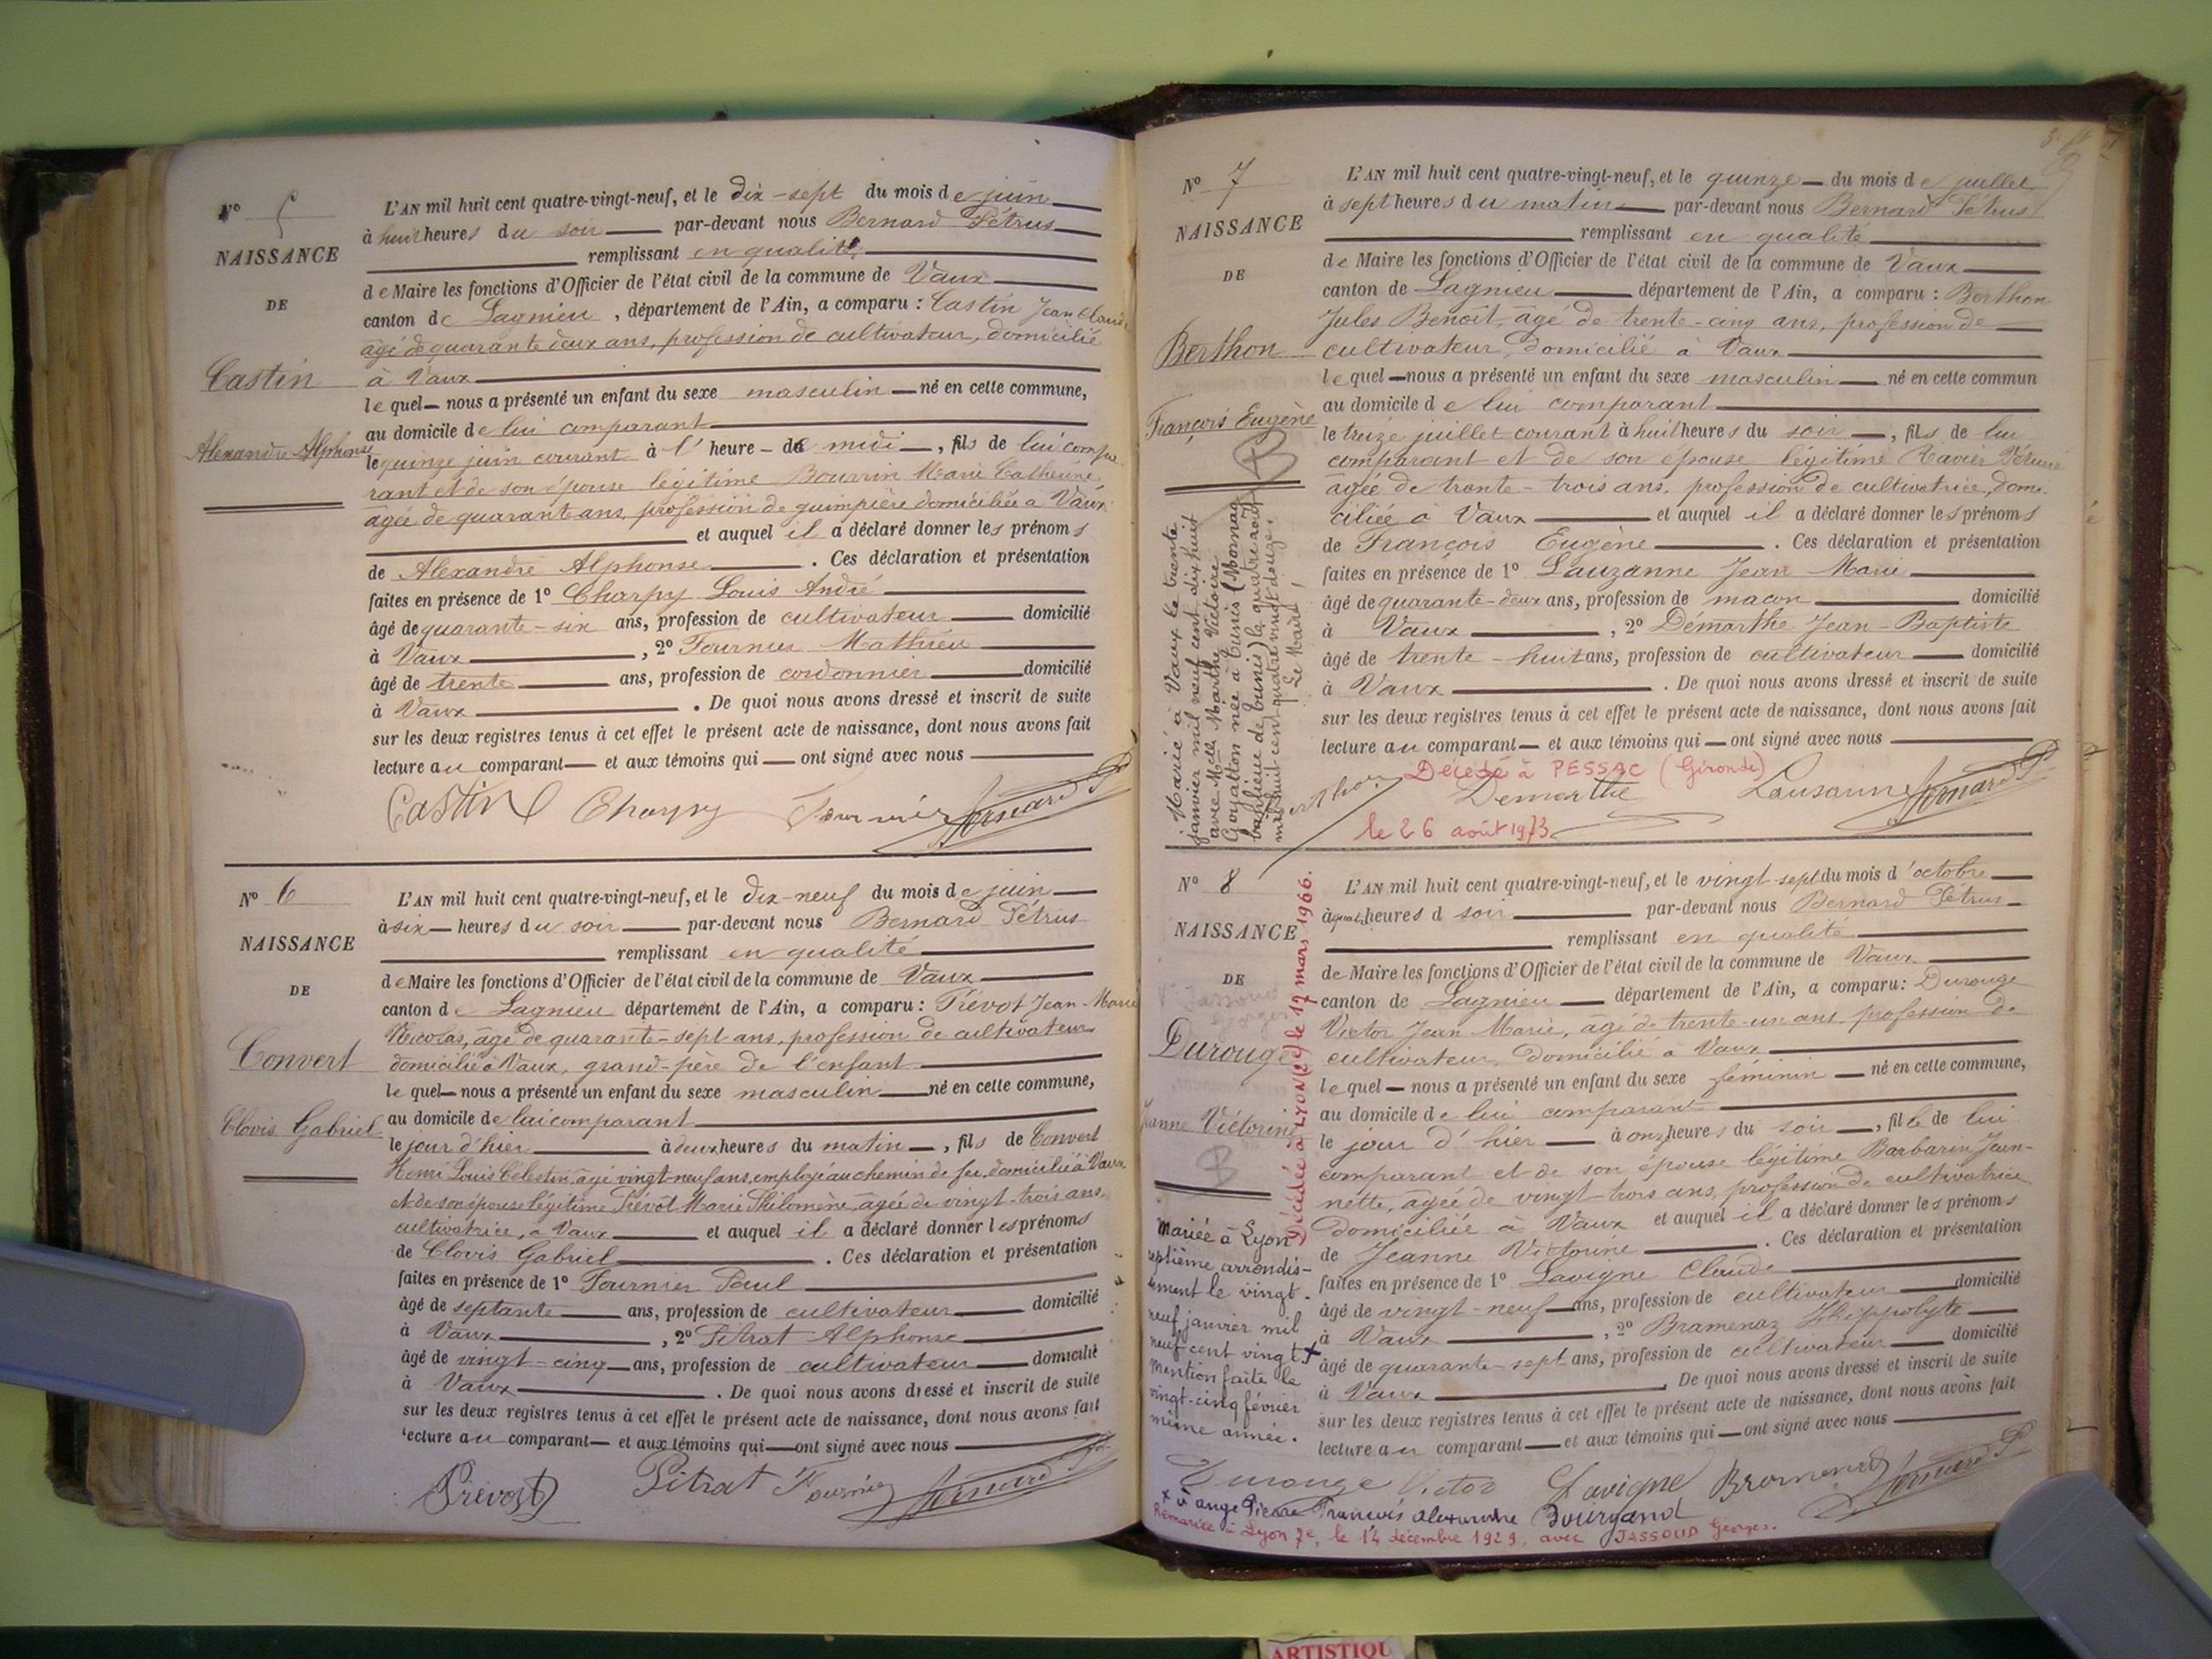 N° 5
NAISSANCE
DE
Castin
Alexandre Alphonse
L'AN mil huit cent quatre-vingt-neuf, et le dix-sept du mois de juin
à huit heures du soir par-devant nous Bernard Pétrus
remplissant en qualité
de Maire les fonctions d'Officier de l'état civil de la commune de Vaux
canton de Lagnieu, département de l'Ain, a comparu : Castin Jean Claude
âgé de quarante deux ans, profession de cultivateur, domicilié
à Vaux
lequel nous a présenté un enfant du sexe masculin né en cette commune,
au domicile de lui comparant
le quinze juin courant à l'heure de midi, fils de lui compa-
rant et de son épouse légitime Bourrin Marie Catherine
âgée de quarante ans, profession de guimpière domiciliée à Vaux
et auquel il a déclaré donner les prénoms
de Alexandre Alphonse. Ces déclaration et présentation
faites en présence de 1° Charpy Louis André
âgé de quarante-six ans, profession de cultivateur domicilié
à Vaux, 2° Fournier Mathieu
âgé de trente ans, profession de cordonnier domicilié
à Vaux. De quoi nous avons dressé et inscrit de suite
sur les deux registres tenus à cet effet le présent acte de naissance, dont nous avons fait
lecture au comparant et aux témoins qui ont signé avec nous
Castin Charpy Fournier Bernard P
N° 6
NAISSANCE
DE
Convert
Clovis Gabriel
L'AN mil huit cent quatre-vingt-neuf, et le dix-neuf du mois de juin
à six heures du soir par-devant nous Bernard Pétrus
remplissant en qualité
de Maire les fonctions d'Officier de l'état civil de la commune de Vaux
canton de Lagnieu département de l'Ain, a comparu : Prévot Jean-Marie
Nicolas, âgé de quarante-sept ans, profession de cultivateur
domicilié à Vaux, grand-père de l'enfant
lequel nous a présenté un enfant du sexe masculin né en cette commune,
au domicile de lui comparant
le jour d'hier à deux heures du matin, fils de Convert
Remi Louis Célestin, âgé vingt-neuf ans, employé au chemin de fer, domicilié à Vaux
et de son épouse légitime Prévot Marie Philomène, âgée de vingt-trois ans,
cultivatrice, à Vaux et auquel il a déclaré donner les prénoms
de Clovis Gabriel. Ces déclaration et présentation
faites en présence de 1° Fournier Paul
âgé de septante ans, profession de cultivateur domicilié
à Vaux, 2° Pitrat Alphonse
âgé de vingt-cinq ans, profession de cultivateur domicilié
à Vaux. De quoi nous avons dressé et inscrit de suite
sur les deux registres tenus à cet effet le présent acte de naissance, dont nous avons fait
lecture au comparant et aux témoins qui ont signé avec nous
Prévost Pitrat Fournier Bernard P
N° 7
NAISSANCE
DE
Berthon
François Eugène
B
Marié à Vaux le trente
janvier mil neuf cent dix huit
avec Melle Marthe Victoire
Goyatton née à Tunis (Mornag
banlieue de Tunis) le quatre août
mil huit cent quatre vingt douze.
Le Maire,
L'AN mil huit cent quatre-vingt-neuf, et le quinze du mois de juillet
à sept heures du matin par-devant nous Bernard Pétrus
remplissant en qualité
de Maire les fonctions d'Officier de l'état civil de la commune de Vaux
canton de Lagnieu département de l'Ain, a comparu : Berthon
Jules Benoît, âgé de trente-cinq ans, profession de
cultivateur, domicilié à Vaux
lequel nous a présenté un enfant du sexe masculin né en cette commun
au domicile de lui comparant
le treize juillet courant à huit heures du soir, fils de lui
comparant et de son épouse légitime Ravier
âgée de trente-trois ans, profession de cultivatrice, domi-
ciliée à Vaux et auquel il a déclaré donner les prénoms
de François Eugène. Ces déclaration et présentation
faites en présence de 1° Lauzanne Jean Marie
âgé de quarante-deux ans, profession de maçon domicilié
à Vaux, 2° Demarthe Jean-Baptiste
âgé de trente-huit ans, profession de cultivateur domicilié
à Vaux. De quoi nous avons dressé et inscrit de suite
sur les deux registres tenus à cet effet le présent acte de naissance, dont nous avons fait
lecture au comparant et aux témoins qui ont signé avec nous
Décédé à PESSAC (Gironde)
le 26 août 1973
Berthon Demarthe Lausanne Bernard P
N° 8
NAISSANCE
DE
Durouge
Jeanne Victorine
B
Décédée à LYON (2e) le 17 mars 1966.
Mariée à Lyon
septième arrondis-
sement le vingt-
neuf janvier mil
neuf cent vingt. +
Mention faite le
vingt-cinq février
même année.
L'AN mil huit cent quatre-vingt-neuf, et le vingt-sept du mois d'octobre
à quatre heures d soir par-devant nous Bernard Pétrus
remplissant en qualité
de Maire les fonctions d'Officier de l'état civil de la commune de Vaux
canton de Lagnieu département de l'Ain, a comparu : Durouge
Victor Jean Marie, âgé de trente-un ans, profession de
cultivateur, domicilié à Vaux
lequel nous a présenté un enfant du sexe féminin né en cette commune,
au domicile de lui comparant
le jour d'hier à onze heures du soir, fille de lui
comparant et de son épouse légitime Barbarin Jean-
nette, âgée de vingt-trois ans, profession de cultivatrice
domiciliée à Vaux et auquel il a déclaré donner les prénoms
de Jeanne Victorine. Ces déclaration et présentation
faites en présence de 1° Lavigne Claude
âgé de vingt-neuf ans, profession de cultivateur domicilié
à Vaux, 2° Bramenaz Hippolyte
âgé de quarante-sept ans, profession de cultivateur domicilié
à Vaux De quoi nous avons dressé et inscrit de suite
sur les deux registres tenus à cet effet le présent acte de naissance, dont nous avons fait
lecture au comparant et aux témoins qui ont signé avec nous
Durouge Victor Lavigne Bramenaz Bernard P
+ à ange Pierre François alexandre Bourgand
Remariée à Lyon 7e, le 14 décembre 1929, avec JASSOUD Georges.
ARTISTIQU